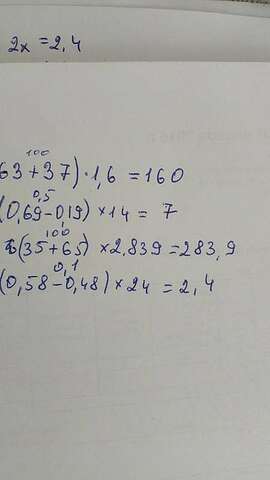 2x = 2,4
100
63 + 37) · 1,6 = 160
0,5
(0,69 - 0,19) × 14 = 7
100
(35 + 65) × 2,839 = 283,9
0,1
(0,58 - 0,48) × 24 = 2,4